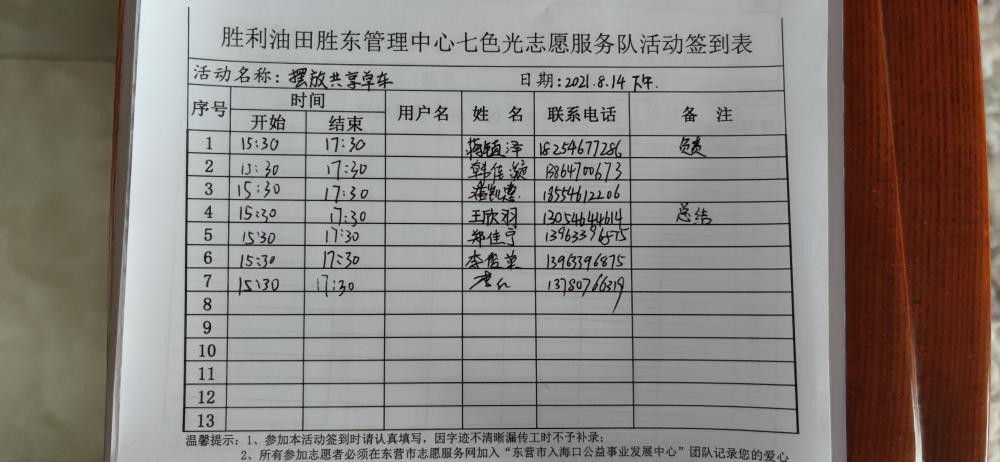 胜利油田胜东管理中心七色光志愿服务队活动签到表
活动名称：摆放共享单车 日期：2021.8.14下午.
序号 时间 用户名 姓名 联系电话 备注
开始 结束
1 15:30 17:30 泽 18254677286 负责
2 15:30 17:30 韩佳 13864700673
3 15:30 17:30 18554612206
4 15:30 17:30 王欣羽 13054644614 总结
5 15:30 17:30 郑佳宁 13963396875
6 15:30 17:30 李 13963396875
7 15:30 17:30 13780766319
8
9
10
11
12
13
温馨提示：1、参加本活动签到时请认真填写，因字迹不清晰漏传工时不予补录；
2、所有参加志愿者必须在东营市志愿服务网加入“东营市入海口公益事业发展中心”团队记录您的爱心